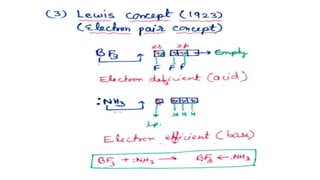 (3) Lewis concept (1923)
(Electron pair concept)
BF3 2s 2p → Empty
F F F
Electron deficient (acid)
:NH3
l.p. H H H
Electron efficient (base)
BF3 + :NH3 → BF3 ← :NH3